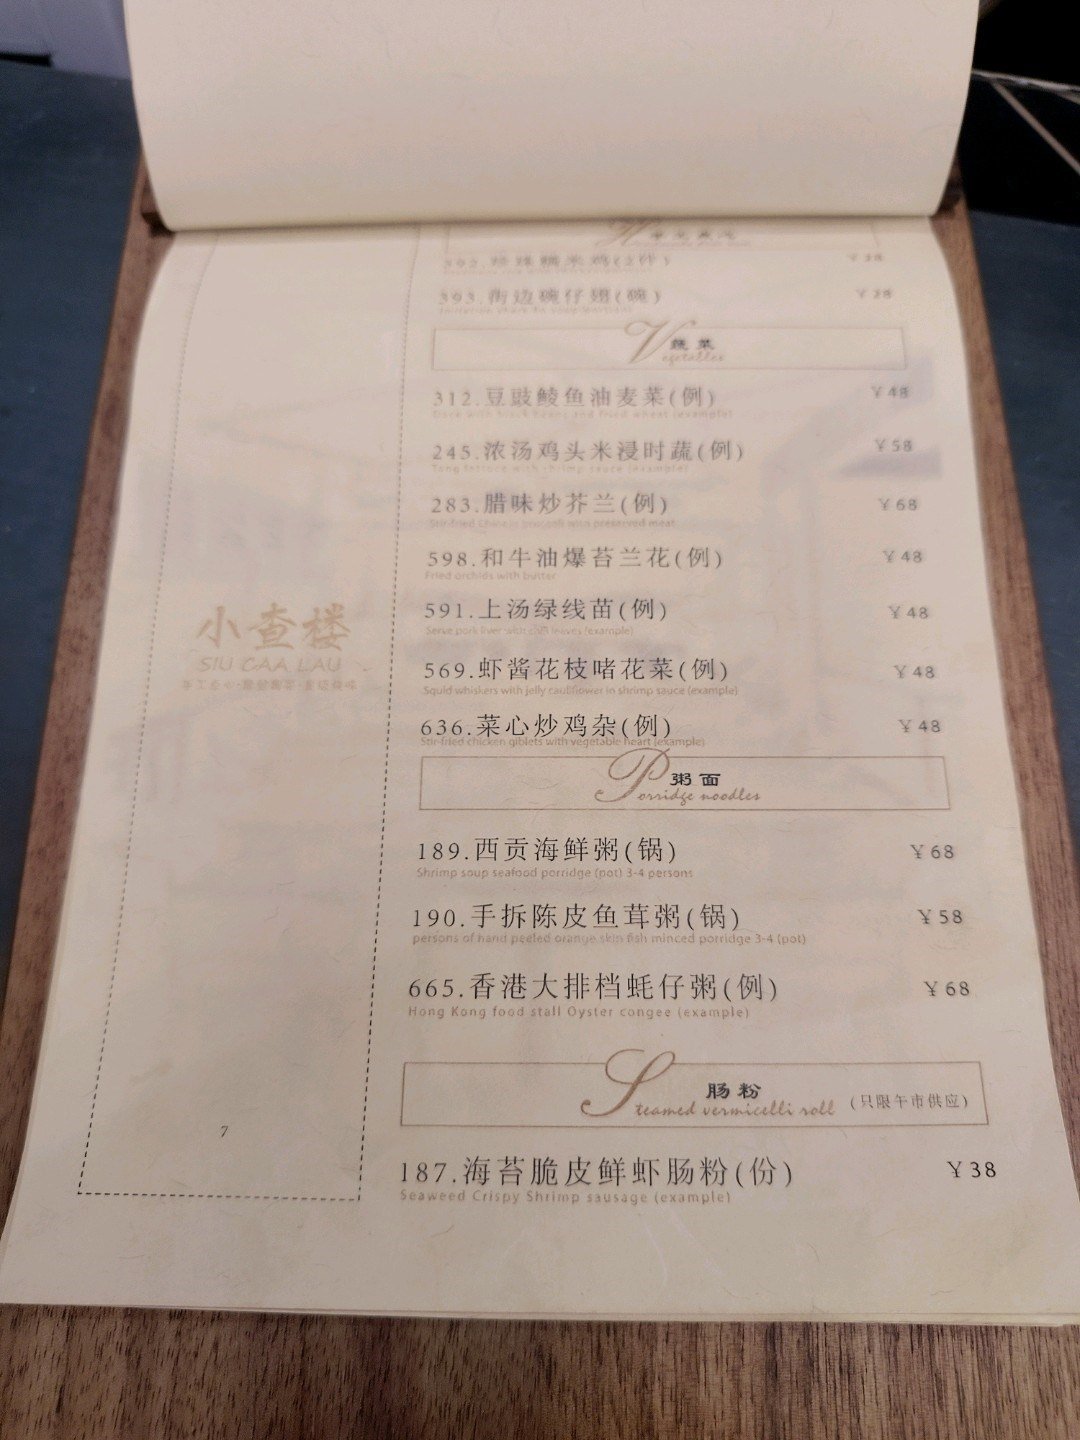 392.珍珠糯米鸡(2件) ￥38
393.街边碗仔翅(碗) ￥28
蔬菜
Vegetables
312.豆豉鲮鱼油麦菜(例) ￥48
Dace with black beans and fried wheat (example)
245.浓汤鸡头米浸时蔬(例) ￥58
Tang lettuce with shrimp sauce (example)
283.腊味炒芥兰(例) ￥68
Stir-fried Chinese broccoli with preserved meat
598.和牛油爆苔兰花(例) ￥48
Fried orchids with butter
591.上汤绿线苗(例) ￥48
Serve pork liver with chili leaves (example)
569.虾酱花枝啫花菜(例) ￥48
Squid whiskers with jelly cauliflower in shrimp sauce (example)
636.菜心炒鸡杂(例) ￥48
Stir-fried chicken giblets with vegetable heart (example)
粥面
Porridge noodles
189.西贡海鲜粥(锅) ￥68
Shrimp soup seafood porridge (pot) 3-4 persons
190.手拆陈皮鱼茸粥(锅) ￥58
persons of hand peeled orange skin fish minced porridge 3-4 (pot)
665.香港大排档蚝仔粥(例) ￥68
Hong Kong food stall Oyster congee (example)
肠粉
Steamed vermicelli roll (只限午市供应)
187.海苔脆皮鲜虾肠粉(份) ￥38
Seaweed Crispy Shrimp sausage (example)
小查楼
SIU CAA LAU
7